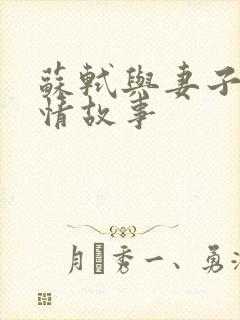 蘇軾與妻子
情故事
秀一、勇